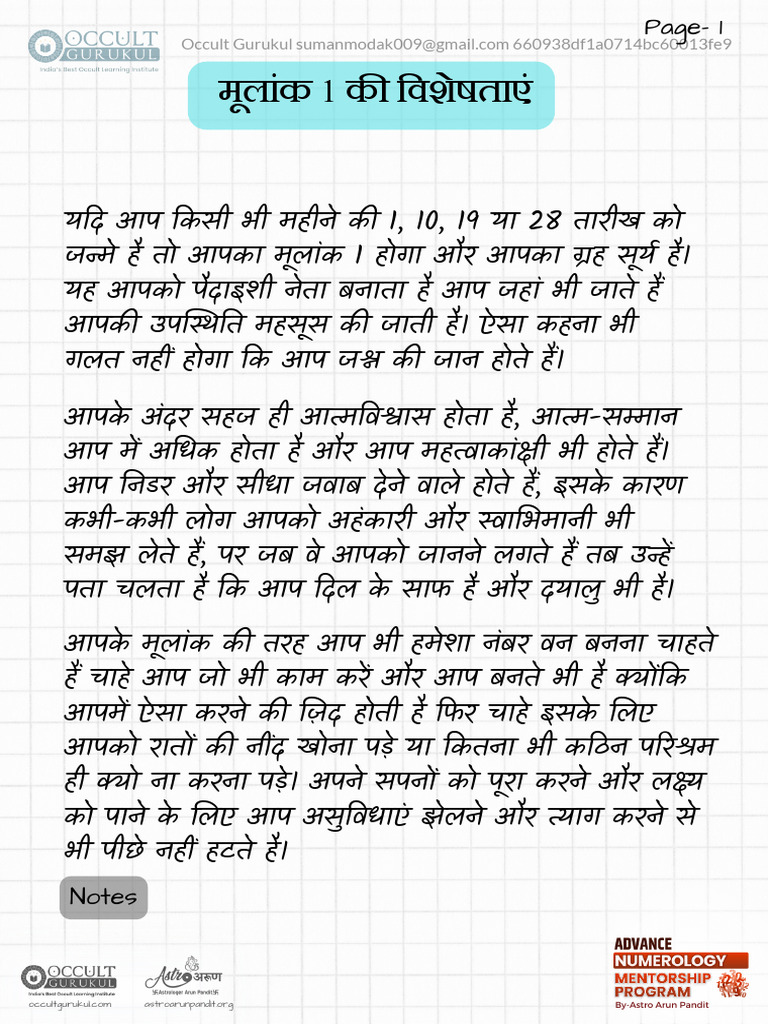 Page- 1
OCCULT
GURUKUL
India's Best Occult Learning Institute
Occult Gurukul sumanmodak009@gmail.com 660938df1a0714bc60013fe9
मूलांक 1 की विशेषताएं
यदि आप किसी भी महीने की 1, 10, 19 या 28 तारीख को
जन्मे है तो आपका मूलांक 1 होगा और आपका ग्रह सूर्य है।
यह आपको पैदाइशी नेता बनाता है आप जहां भी जाते हैं
आपकी उपस्थिति महसूस की जाती है। ऐसा कहना भी
गलत नहीं होगा कि आप जश्न की जान होते हैं।
आपके अंदर सहज ही आत्मविश्वास होता है, आत्म-सम्मान
आप में अधिक होता है और आप महत्वाकांक्षी भी होते हैं।
आप निडर और सीधा जवाब देने वाले होते हैं, इसके कारण
कभी-कभी लोग आपको अहंकारी और स्वाभिमानी भी
समझ लेते हैं, पर जब वे आपको जानने लगते हैं तब उन्हें
पता चलता है कि आप दिल के साफ है और दयालु भी है।
आपके मूलांक की तरह आप भी हमेशा नंबर वन बनना चाहते
हैं चाहे आप जो भी काम करें और आप बनते भी है क्योंकि
आपमें ऐसा करने की ज़िद होती है फिर चाहे इसके लिए
आपको रातों की नींद खोना पड़े या कितना भी कठिन परिश्रम
ही क्यो ना करना पड़े। अपने सपनों को पूरा करने और लक्ष्य
को पाने के लिए आप असुविधाएं झेलने और त्याग करने से
भी पीछे नहीं हटते है।
Notes
OCCULT
GURUKUL
India's Best Occult Learning Institute
occultgurukul.com
Astro अरूण
卐Astrologer Arun Pandit卐
astroarunpandit.org
ADVANCE
NUMEROLOGY
MENTORSHIP
PROGRAM
By-Astro Arun Pandit